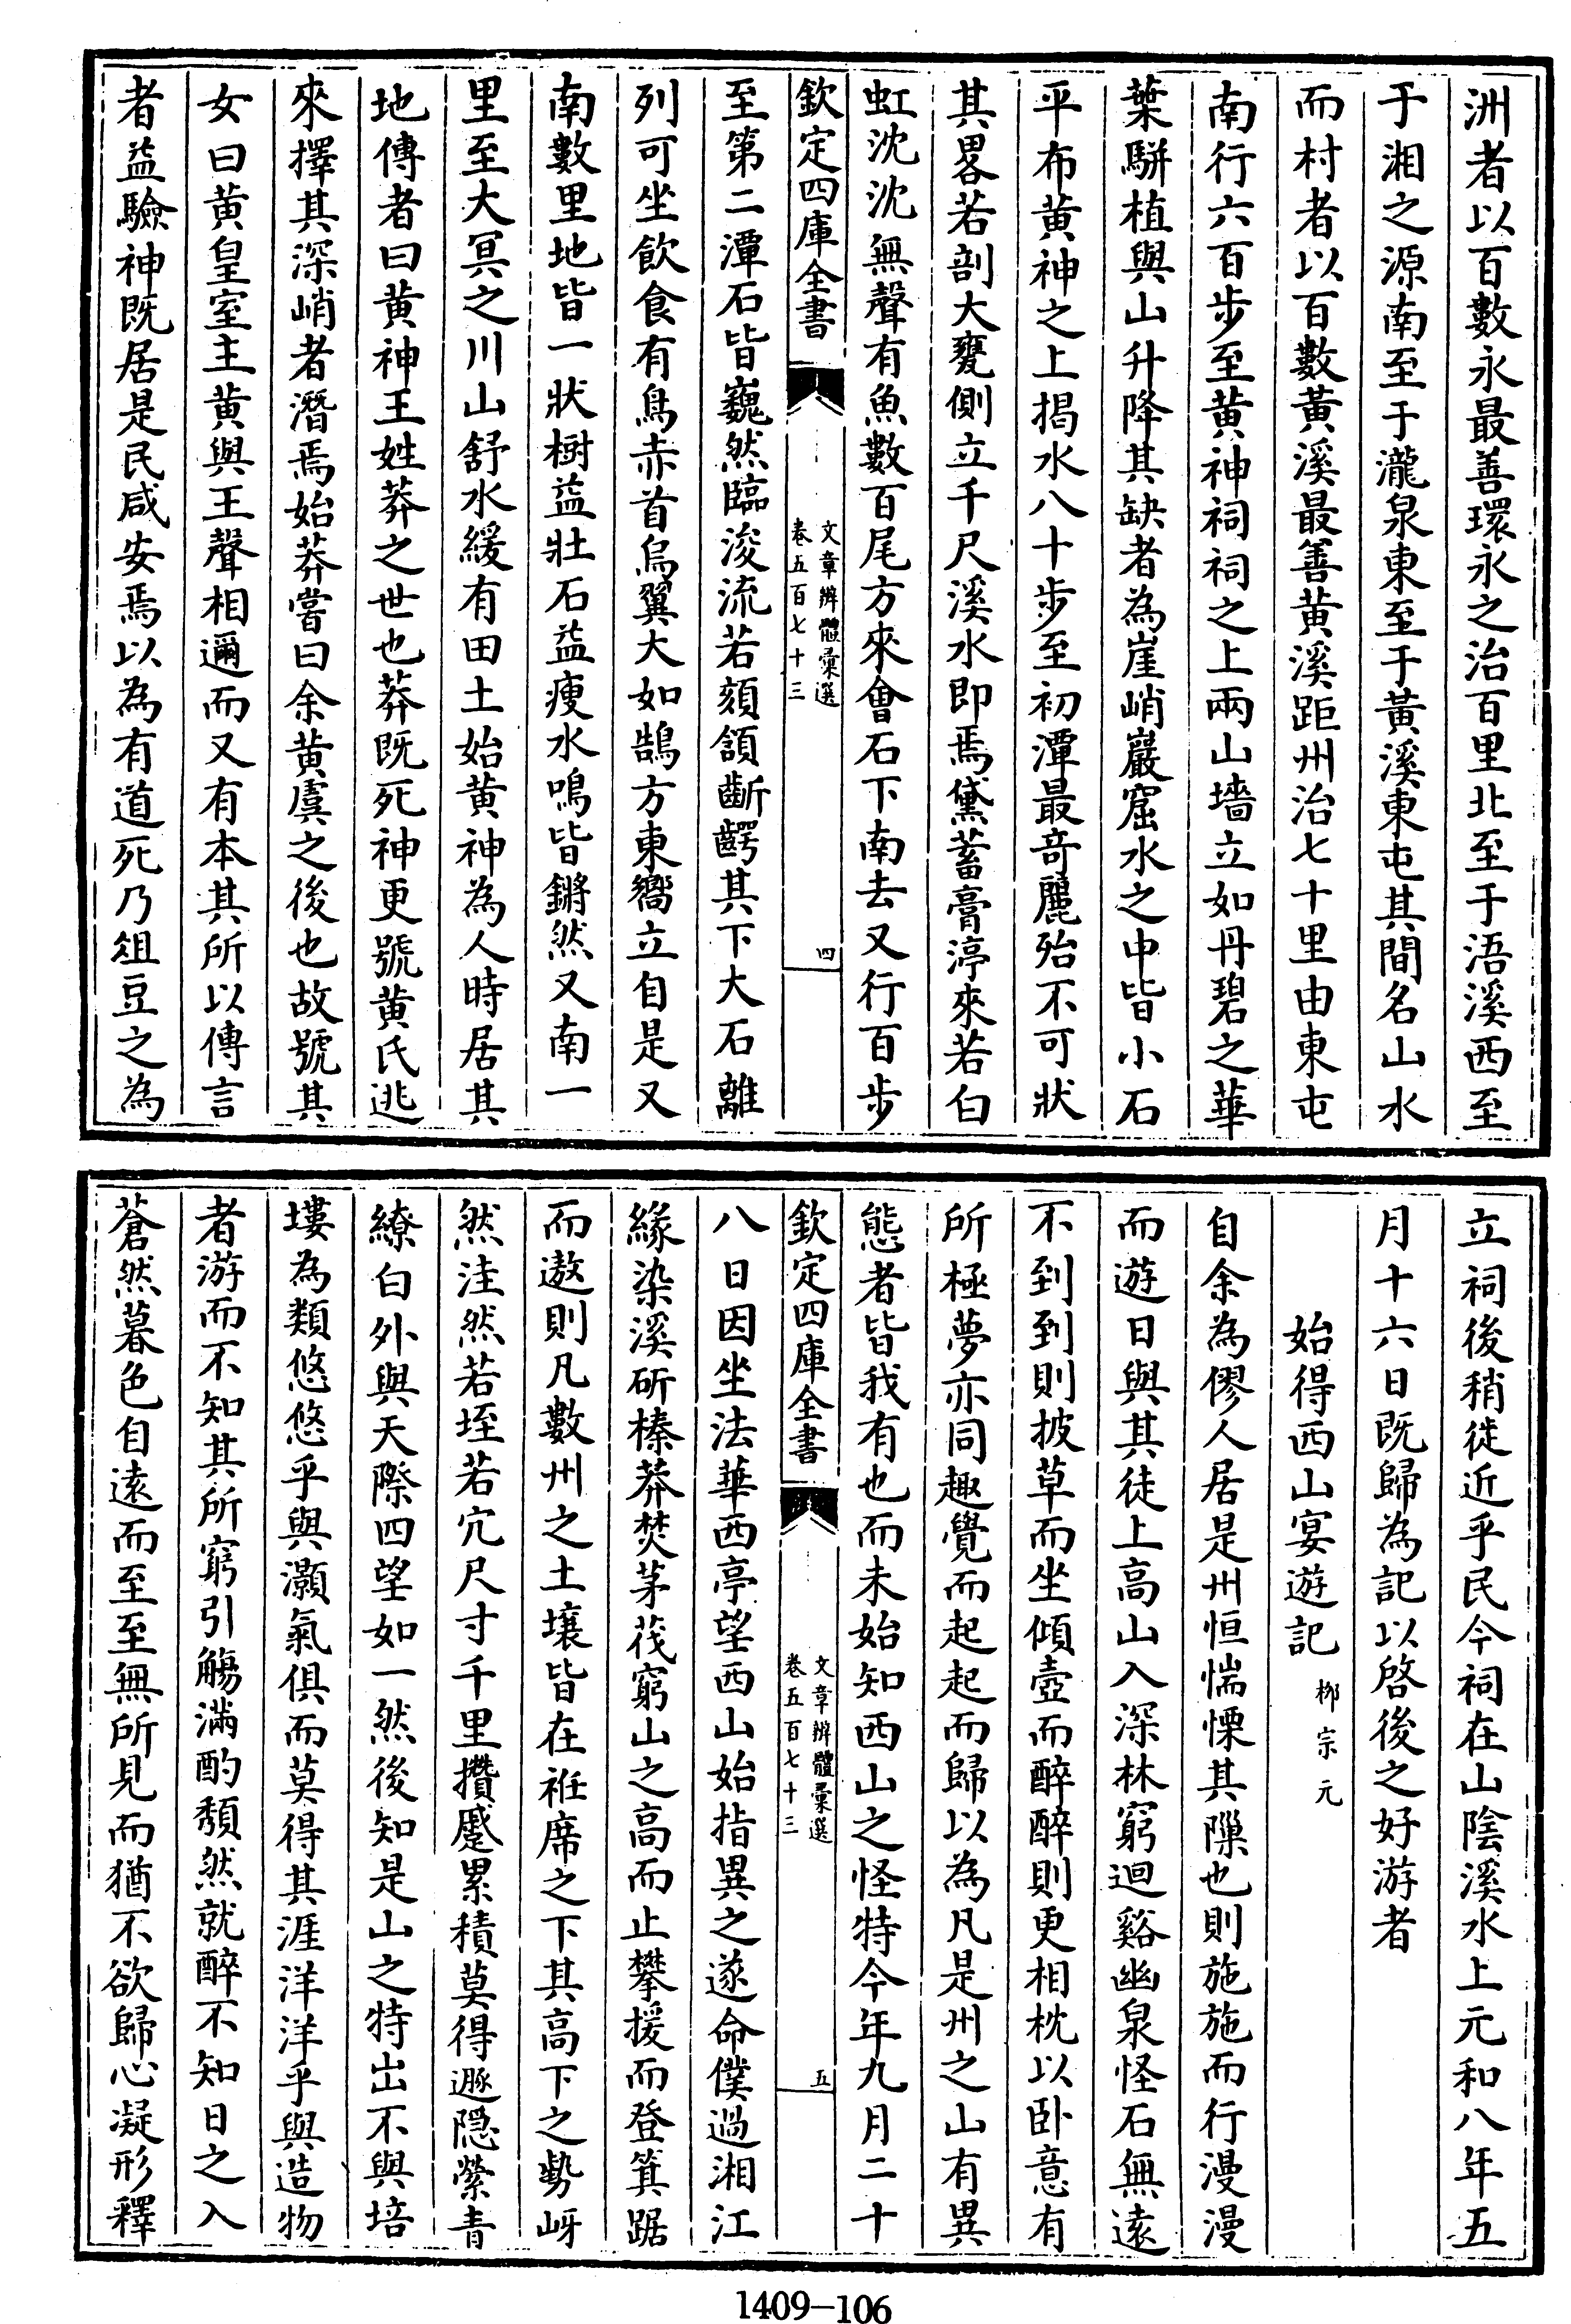 洲者以百數永最善環永之治百里北至于浯溪西至
于湘之源南至于瀧泉東至于黃溪東屯其間名山水
而村者以百數黃溪最善黃溪距州治七十里由東屯
南行六百步至黃神祠祠之上兩山墻立如丹碧之華
葉駢植與山升降其缺者為崖峭巖窟水之中皆小石
平布黃神之上揭水八十步至初潭最奇麗殆不可狀
其畧若剖大甕側立千尺溪水即焉黛蓄膏渟來若白
虹沈沈無聲有魚數百尾方來會石下南去又行百步
欽定四庫全書
文章辨體彙選
卷五百七十三
四
至第二潭石皆巍然臨浚流若頦頷齗齶其下大石離
列可坐飲食有鳥赤首烏翼大如鵠方東嚮立自是又
南數里地皆一狀樹益壯石益瘦水鳴皆鏘然又南一
里至大冥之川山舒水緩有田土始黃神為人時居其
地傳者曰黃神王姓莽之世也莽既死神更號黃氏逃
來擇其深峭者潛焉始莽嘗曰余黃虞之後也故號其
女曰黃皇室主黃與王聲相邇而又有本其所以傳言
者益驗神既居是民咸安焉以為有道死乃俎豆之為
立祠後稍徙近乎民今祠在山陰溪水上元和八年五
月十六日既歸為記以啓後之好游者
始得西山宴遊記 栁宗元
自余為僇人居是州恒惴慄其隟也則施施而行漫漫
而遊日與其徒上高山入深林窮迴谿幽泉怪石無遠
不到到則披草而坐傾壺而醉醉則更相枕以卧意有
所極夢亦同趣覺而起起而歸以為凡是州之山有異
態者皆我有也而未始知西山之怪特今年九月二十
欽定四庫全書
文章辨體彙選
卷五百七十三
五
八日因坐法華西亭望西山始指異之遂命僕過湘江
緣染溪斫榛莽焚茅茷窮山之高而止攀援而登箕踞
而遨則凡數州之土壤皆在袵席之下其高下之勢岈
然洼然若垤若穴尺寸千里攢蹙累積莫得遯隱縈青
繚白外與天際四望如一然後知是山之特出不與培
塿為類悠悠乎與灝氣俱而莫得其涯洋洋乎與造物
者游而不知其所窮引觴滿酌頽然就醉不知日之入
蒼然暮色自遠而至至無所見而猶不欲歸心凝形釋
1409-106